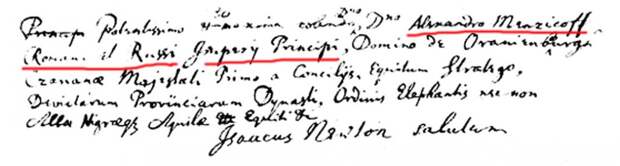 Principi Potentissimo colendo, Dno Alexandro Menzicoff
Romani et Russi Imperij Principi, Domino de Oranienburgh
Czarianæ Majestati Primo a Concilijs, Equitum Stratego,
Devictarum Provinciarum Dynastæ, Ordinis Elephantis nec non
Aquilæ Equiti &c
Isaacus Newton salutem